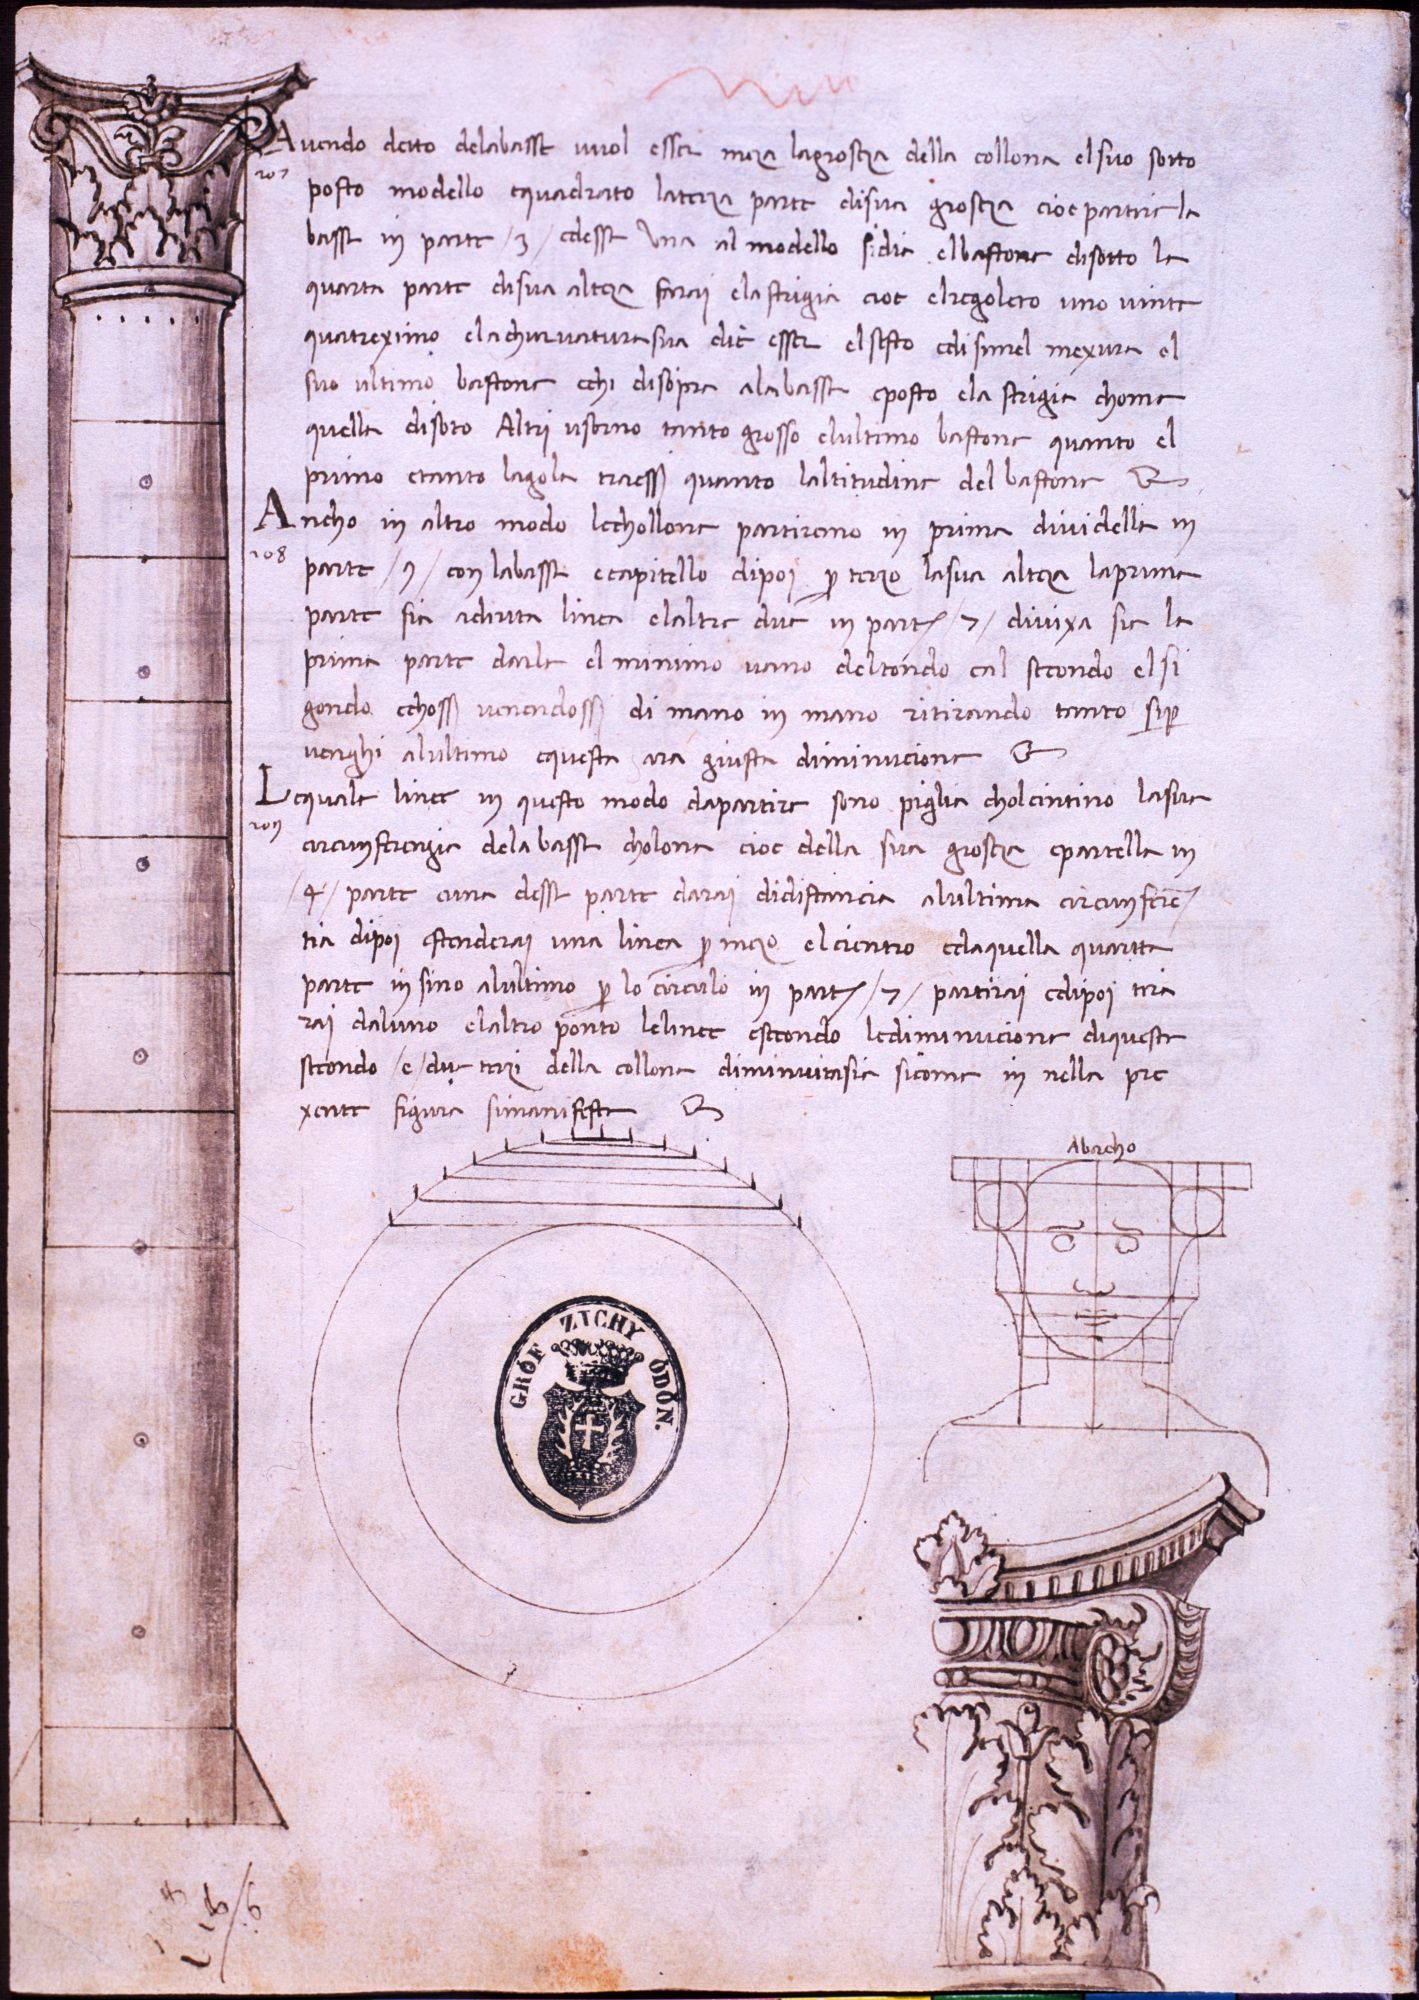 Avendo detto delabasse vuol esser meza lagroseza della collona elsuo sotto
107
posto modello equadrato laterza parte disua groseza cioe partire la
basse in parte /3/ edesse una al modello sidia elbastone disotto la
quarta parte disua alteza farai elastrigia cioe elregoleto uno vinte
quatreximo elachurvatura sua die esser elsesto edisimel mexura el
suo ultimo bastone echi disopra alabasse eposto ela strigia chome
quella disoto Altri userno tanto grosso elultimo bastone quanto el
primo etanto lagola traessi quanto laltitudine del bastone
Ancho in altro modo lechollone partiremo in prima dividella in
108
parte /9/ con labasse ecapitello dipoi per terzo lasua alteza laprima
parte sia adirita linea elaltre due in parti /7/ divixa sia la
prima parte darla el minimo vano deltondo eal secondo elsi
gondo echossi venendossi di mano in mano ritirando tanto sip
venghi alultimo equesta ara giusta diminucione
Lequale linee in questo modo dapartire sono piglia cholcintino lasua
109
circunferenzia dela basse cholona cioe della sua groseza epartella in
/4/ parte euna desse parte darai didistancia alultima circunferen
tia dipoi estenderai una linea per mezo elcientro edaquella quarta
parte in sino alultimo per lo circulo in parti /7/ partirai edipoi tira
rai daluno elaltro ponto lelinee esecondo lediminucione diqueste
secondo /e/ due terzi della collona diminuitasia sicome in nella pre
xente figura simanifesta
Abacho
GRÓF ZICHY ÖDÖN.